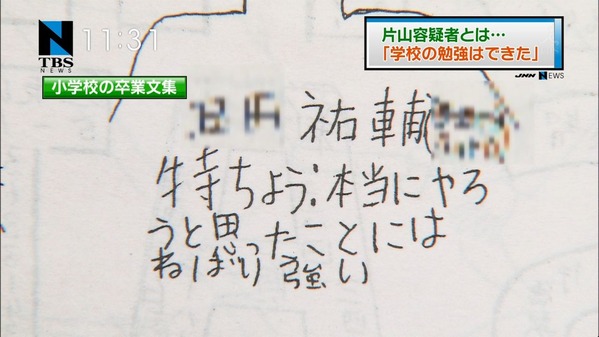 N
11:31
TBS
NEWS
片山容疑者とは…
「学校の勉強はできた」
JNN NEWS
小学校の卒業文集
祐輔
特ちょう:本当にやろ
うと思ったことには
ねばり強い